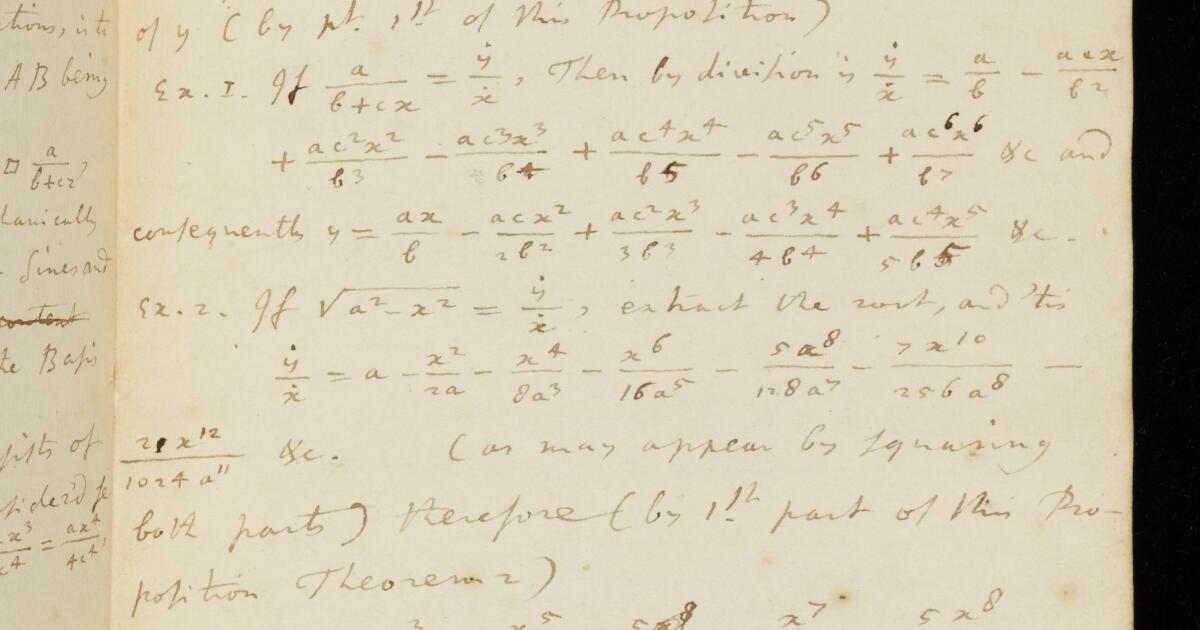 tions, is to
AB being
□ a/(b+cx),
hanically
- Sines and
content
the Basis
sists of
sider'd se
x³/c⁴ = ax⁴/4c⁴,
of y (by pt. 1st. of this Proposition)
Ex. I. If a/(b+cx) = ẏ/ẋ, Then by division is ẏ/ẋ = a/b − acx/b²
+ ac²x²/b³ − ac³x³/b4 + ac⁴x⁴/b5 − ac⁵x⁵/b6 + ac⁶x⁶/b7 &c and
consequently y = ax/b − acx²/2b² + ac²x³/3b³ − ac³x⁴/4b⁴ + ac⁴x⁵/5b5 &c.
Ex. 2. If √(a²−x²) = ẏ/ẋ, extract the root, and 'tis
ẏ/ẋ = a − x²/2a − x⁴/8a³ − x⁶/16a⁵ − 5x⁸/128a⁷ − 7x¹⁰/256a⁸ −
21x¹²/1024a¹¹ &c. (as may appear by squaring
both parts) therefore (by 1st part of this Pro-
position Theorem 2)
x⁵ x⁷ 5x⁸